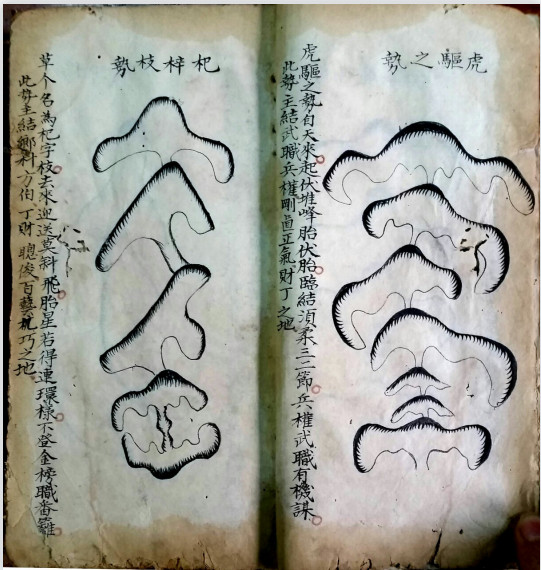 虎驅之勢
虎驅之勢自天來起伏堆峰胎伏胎臨結須柔三二節兵權武職有機謀
此勢主結武職兵權剛直正氣財丁之地
杞梓枝勢
草个名為杞字枝去來迎送莫斜飛胎星若得連環樣不登金榜職番籬
此勢主結鄉科方伯丁財 聰俊百藝機巧之地